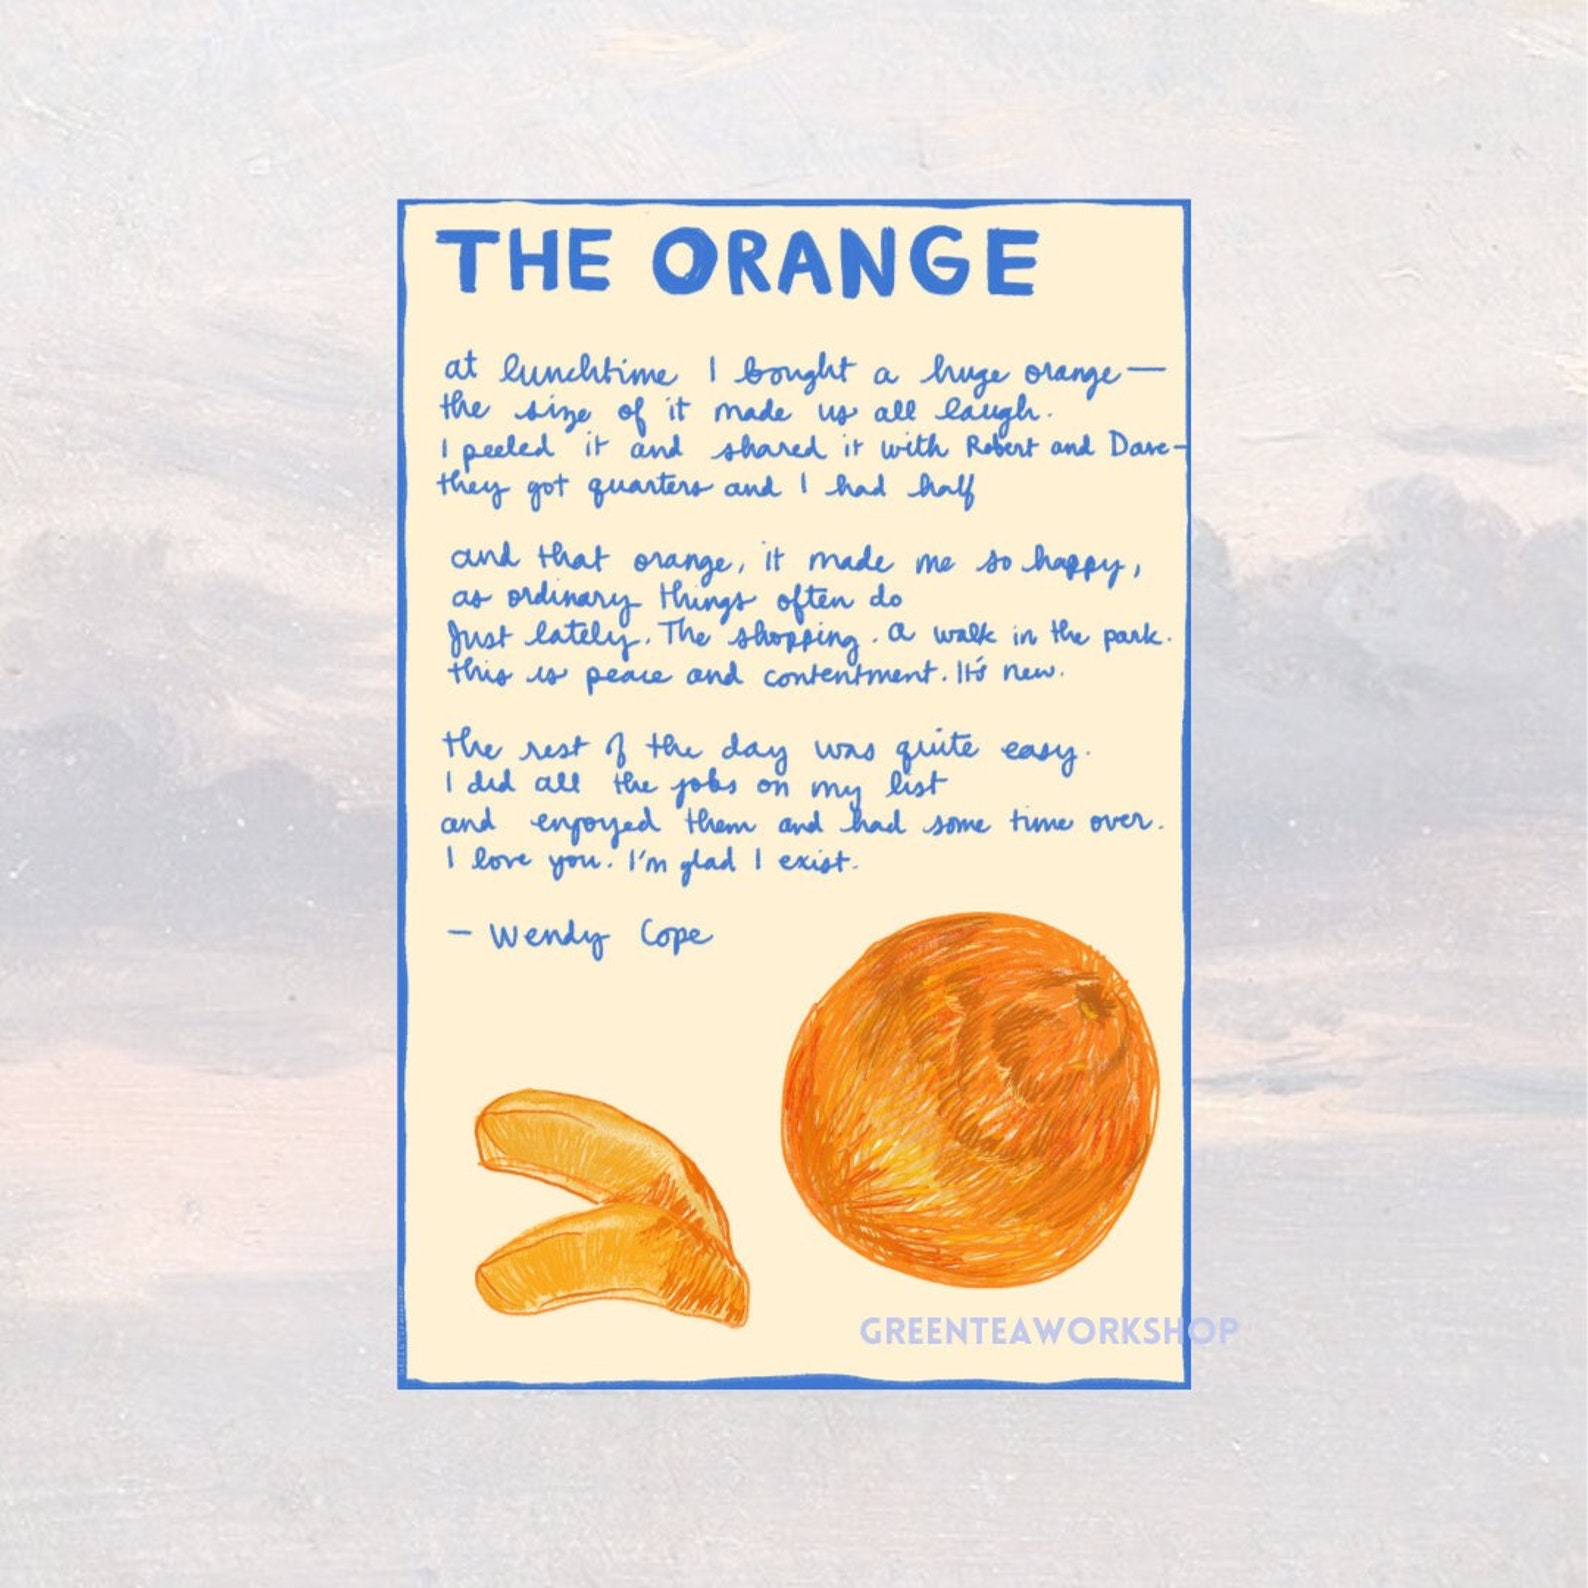 THE ORANGE
at lunchtime I bought a huge orange—
the size of it made us all laugh.
I peeled it and shared it with Robert and Dave—
they got quarters and I had half
and that orange, it made me so happy,
as ordinary things often do
Just lately. The shopping. a walk in the park.
this is peace and contentment. It's new.
the rest of the day was quite easy.
I did all the jobs on my list
and enjoyed them and had some time over.
I love you. I'm glad I exist.
— Wendy Cope
GREENTEAWORKSHOP